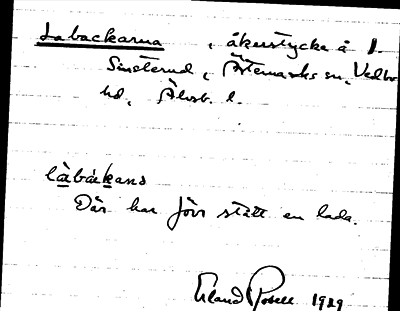 Labackarna, åkerstycke å 1.
Sinsterud, Ärtemarks sn, Vedbo
hd, Älvsb. l.
làbàckana
Där har förr stått en lada.
Erland Rosell 1929